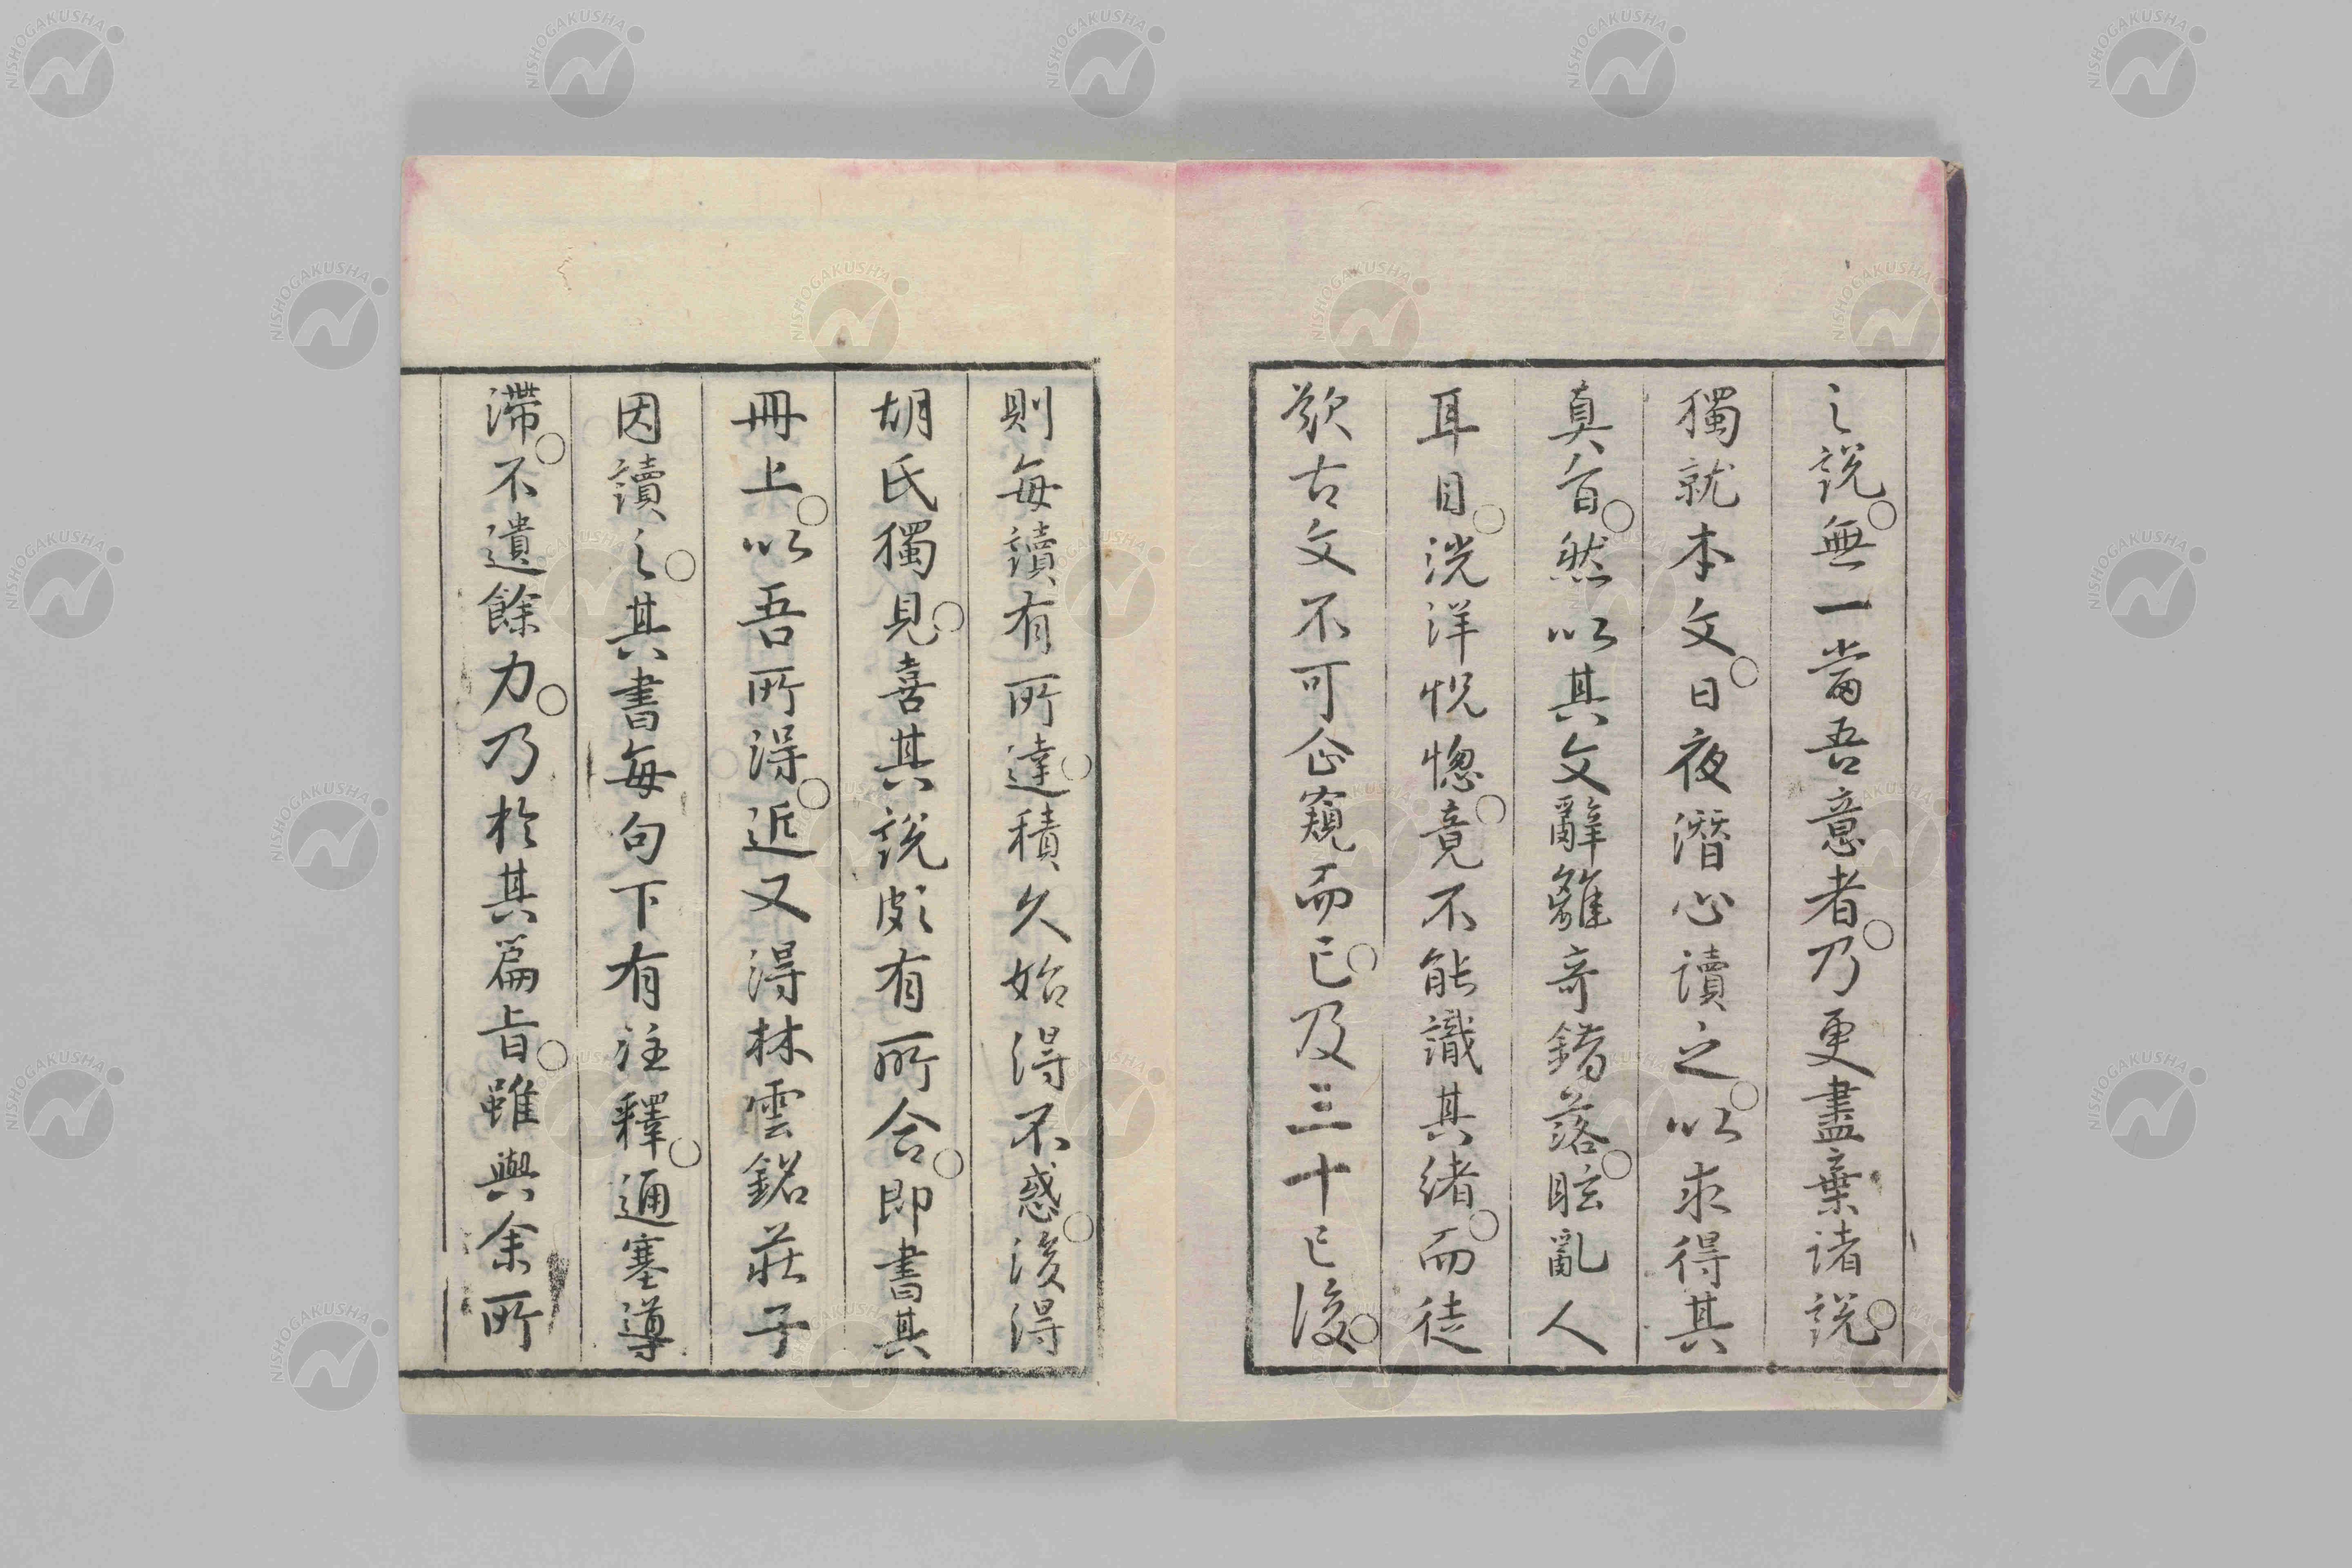 之說○無一當吾意者○乃更盡棄諸說○
獨就本文○日夜潛心讀之○以求得其
真旨○然以其文辭離奇錯落○眩亂人
耳目○洸洋怳惚○竟不能識其緒○而徒
歎古文不可企窺而已○及三十已後○
則每讀有所達○積久始得不惑○後得
胡氏獨見○喜其說頗有所合○即書其
冊上○以吾所得○近又得林雲銘莊子
因讀之○其書每句下有注釋○通塞導
滯○不遺餘力○乃於其篇旨○雖與余所
NISHOGAKUSHA